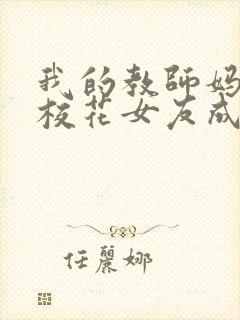 我的教師媽
校花女友成
任麗娜